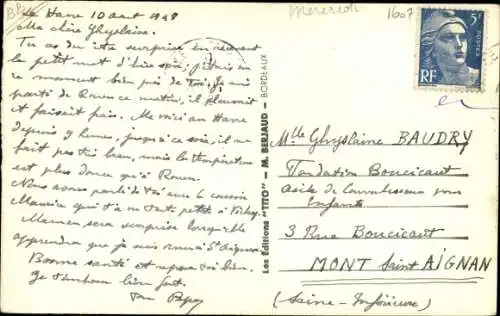 Le Havre 10 août 1948
Ma chère Ghyslaine.
Tu as dû être surprise en recevant
le petit mot d'hier soir; j'étais en
ce moment bien près de toi. Je suis
parti de Rouen ce matin, il pleuvait
et faisait gris. Me voici au Havre
depuis 9 heures, jusqu'à ce soir, il ne
fait pas très beau, mais la température
est plus douce qu'à Rouen.
Nous avons parlé de toi avec le cousin
Maurice qui t'a vu toute petite à
Maman sera surprise lorsqu'elle
apprendra que je suis venu à St Aignan
Bonne santé et repose toi bien.
Je t'embrasse bien fort.
Ton Papa
Les Éditions "TITO" - M. BERJAUD - BORDEAUX
Mercredi
1607
5F
POSTES
RF
Mlle Ghyslaine BAUDRY
Fondation Boucicaut
Asile de Convalescence pour
Enfants
3 Rue Boucicaut
MONT Saint AIGNAN
(Seine-Inférieure)